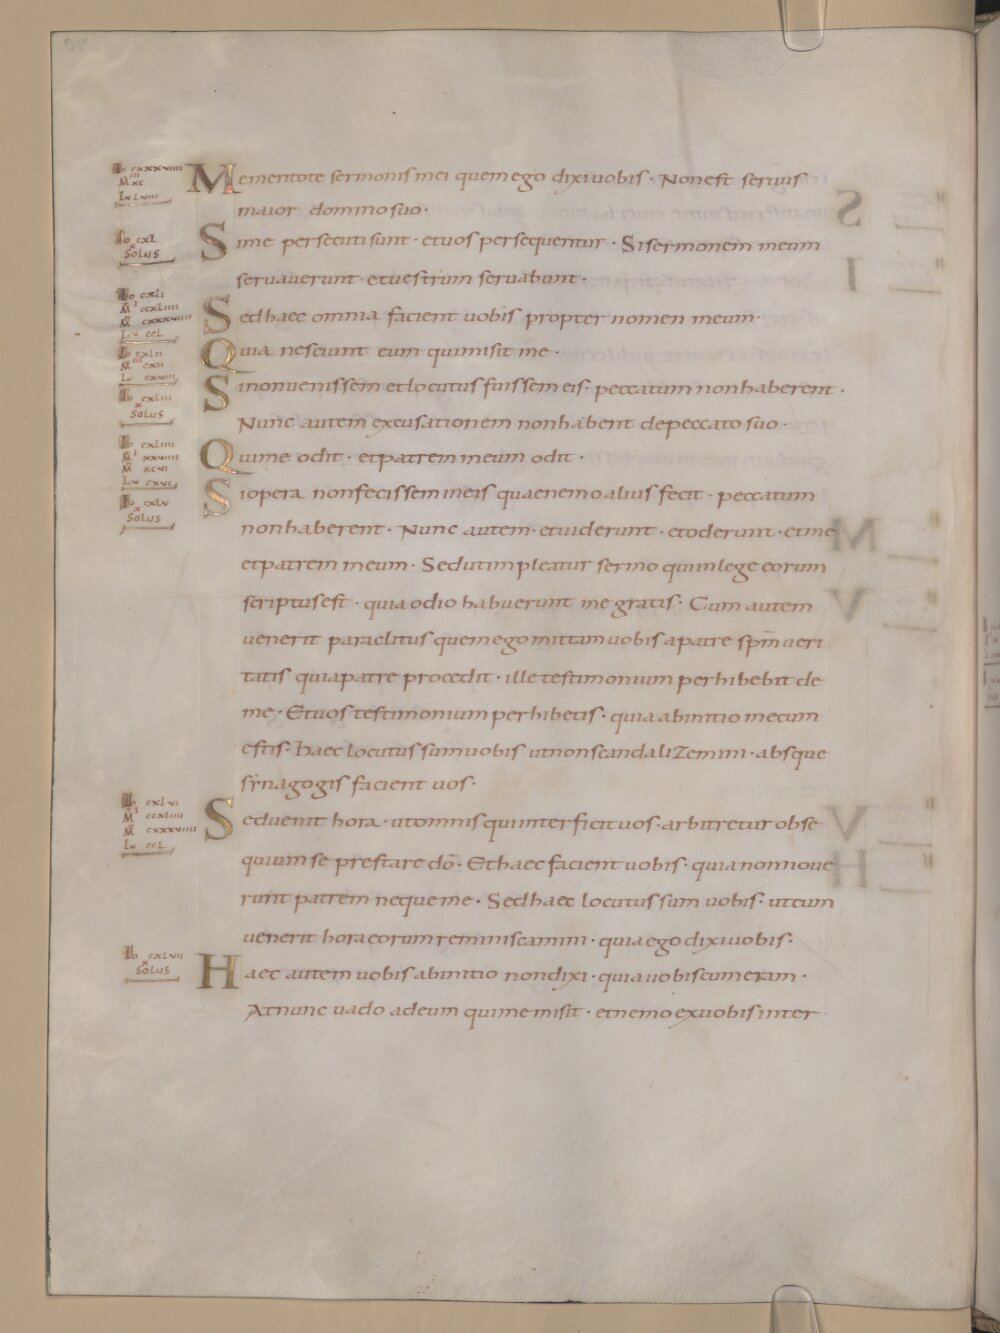 Io cxxxviiii
M xc
Lu Lviii
Mementote sermonis mei quem ego dixi uobis · Non est seruus
maior domino suo ·
Io cxL
x
SOLUS
Si me persecuti sunt · et uos persequentur · Si sermonem meum
seruauerunt · et uestrum seruabunt ·
Io cxLi
M ccxLiiii
M cxxxviiii
Lu ccL
Sed haec omnia facient uobis propter nomen meum ·
Io cxLii
M cxii
Lu cxviii
Quia nesciunt eum qui misit me ·
Io cxLiii
x
SOLUS
Si non uenissem et locutus fuissem eis · peccatum non haberent ·
Nunc autem excusationem non habent de peccato suo ·
Io cxLiiii
M xcvi
Lu cxvi
Qui me odit · et patrem meum odit ·
Io cxLv
x
SOLUS
Si opera non fecissem in eis quae nemo alius fecit · peccatum
non haberent · Nunc autem · et uiderunt · et oderunt · et me
et patrem meum · Sed ut impleatur sermo qui in lege eorum
scriptus est · quia odio habuerunt me gratis · Cum autem
uenerit paraclitus quem ego mittam uobis a patre spm ueri
tatis qui a patre procedit · ille testimonium perhibebit de
me · Et uos testimonium perhibetis · quia ab initio mecum
estis · haec locutus sum uobis ut non scandalizemini · absque
synagogis facient uos ·
Io cxLvi
M ccxLiiii
M cxxxviiii
Lu ccL
Sed uenit hora · ut omnis qui interficit uos · arbitretur obse
quium se prestare dō · Et haec facient uobis · quia non noue
runt patrem neque me · Sed haec locutus sum uobis · ut cum
uenerit hora eorum reminiscamini · quia ego dixi uobis ·
Io cxLvii
x
SOLUS
Haec autem uobis ab initio non dixi · quia uobiscum eram ·
At nunc uado ad eum qui me misit · et nemo ex uobis inter